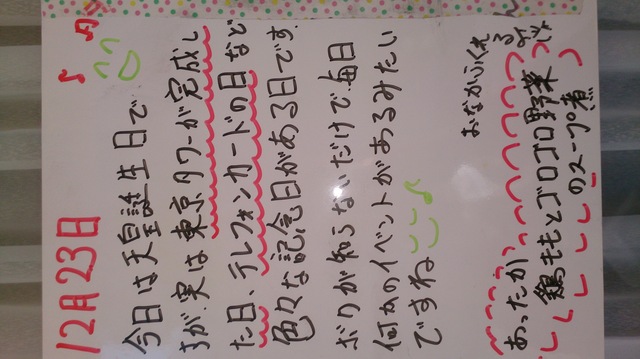 12月23日
今日は天皇誕生日で
すが、実は東京タワーが完成し
た日、テレフォンカードの日など
色々な記念日がある日です。
ボクが知らないだけで、毎日
何かのイベントがあるみたい
ですね
おなかふくれ
るみん
あったか
鶏ももとゴロゴロ野菜
のスープ煮